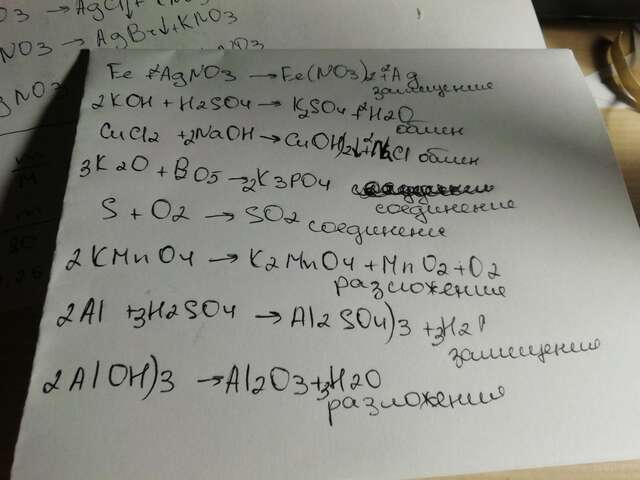 → AgCl↓
NO3 → AgBr↓+KNO3
NO3
Fe +2AgNO3 → Fe(NO3)2+2Ag
замещение
2KOH + H2SO4 → K2SO4+2H2O
обмен
CuCl2 +2NaOH → CuOH)2↓+2NaCl обмен
3K2O + BO5 → 2K3PO4
соединение
S + O2 → SO2
соединение
2KMnO4 → K2MnO4+MnO2+O2
разложение
2Al +3H2SO4 → Al2SO4)3 +3H2↑
замещение
2AlOH)3 → Al2O3+3H2O
разложение